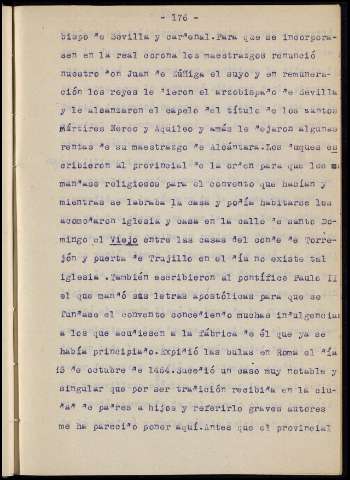 - 176 -
bispo de Sevilla y cardenal.Para que se incorpora-
sen en la real corona los maestrazgos renunció
nuestro don Juan de Zúñiga el suyo y en remunera-
ción los reyes le dieron el arzobispado de Sevilla
y le alcanzaron el capelo del título de los santos
Mártires Nereo y Aquileo y amás le dejaron algunas
rentas de su maestrazgo de Alcántara.Los duques es
cribieron al provincial de la orden para que les
mandase religiosos para el convento que habían y
mientras se labraba la casa y podía habitarse los
acomodaron iglesia y casa en la calle de santo Do-
mingo el Viejo entre las casas del conde de Torre-
jón y puerta de Trujillo en el día no existe tal
iglesia .También escribieron al pontífice Paulo II
el que mandó sus letras apostólicas para que se
fundase el convento concediendo muchas indulgencias
a los que acudiesen a la fábrica de él que ya se
había principiado.Expidió las bulas en Roma el día
15 de octubre de 1464.Sucedió un caso muy notable y
singular que por ser tradición recibida en la ciu-
dad de padres a hijos y referirlo graves autores
me ha parecido poner aquí.Antes que el provincial